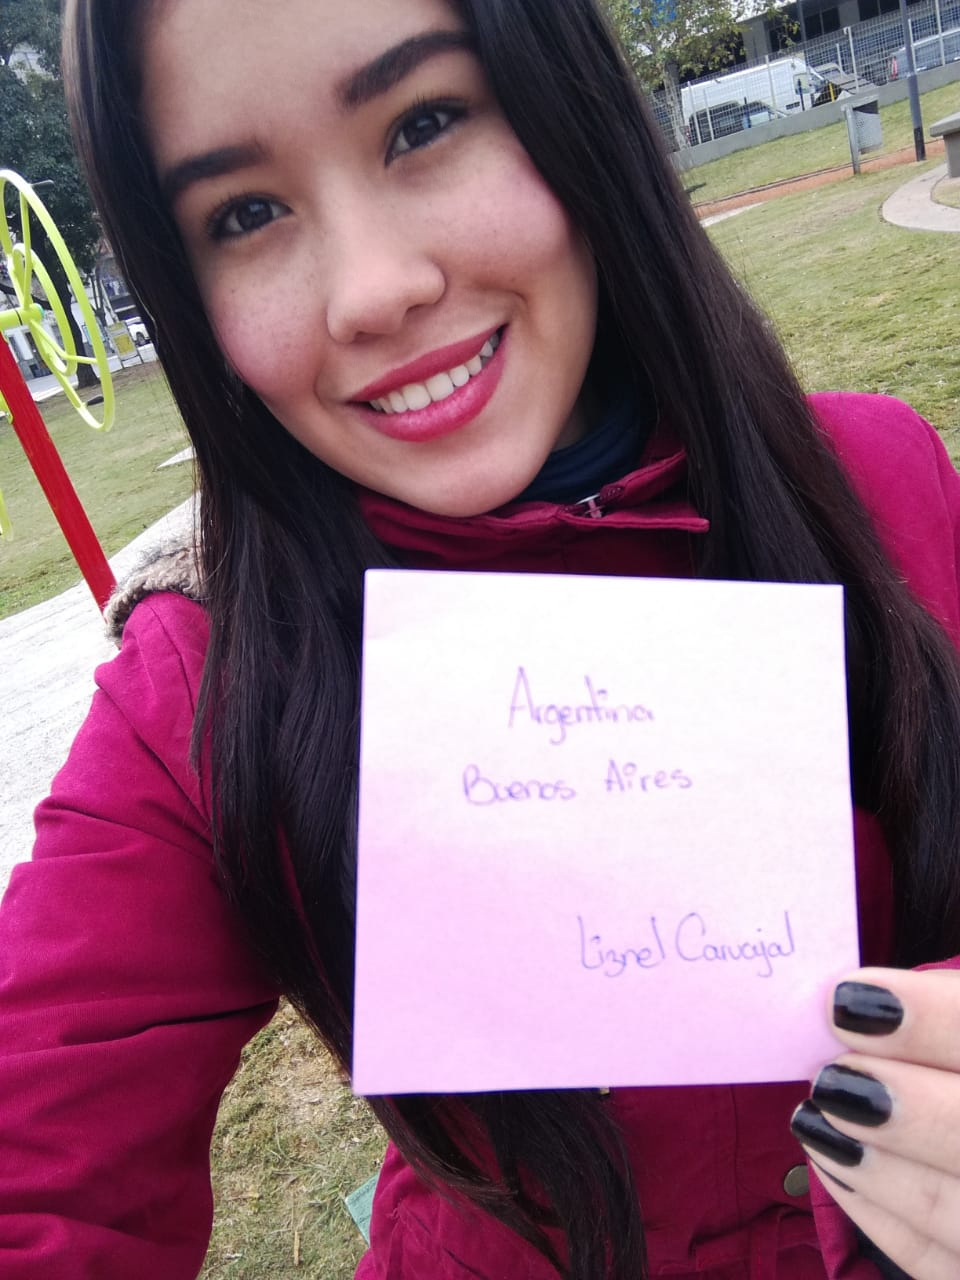 Argentina
Buenos Aires
Liznel Carvajal